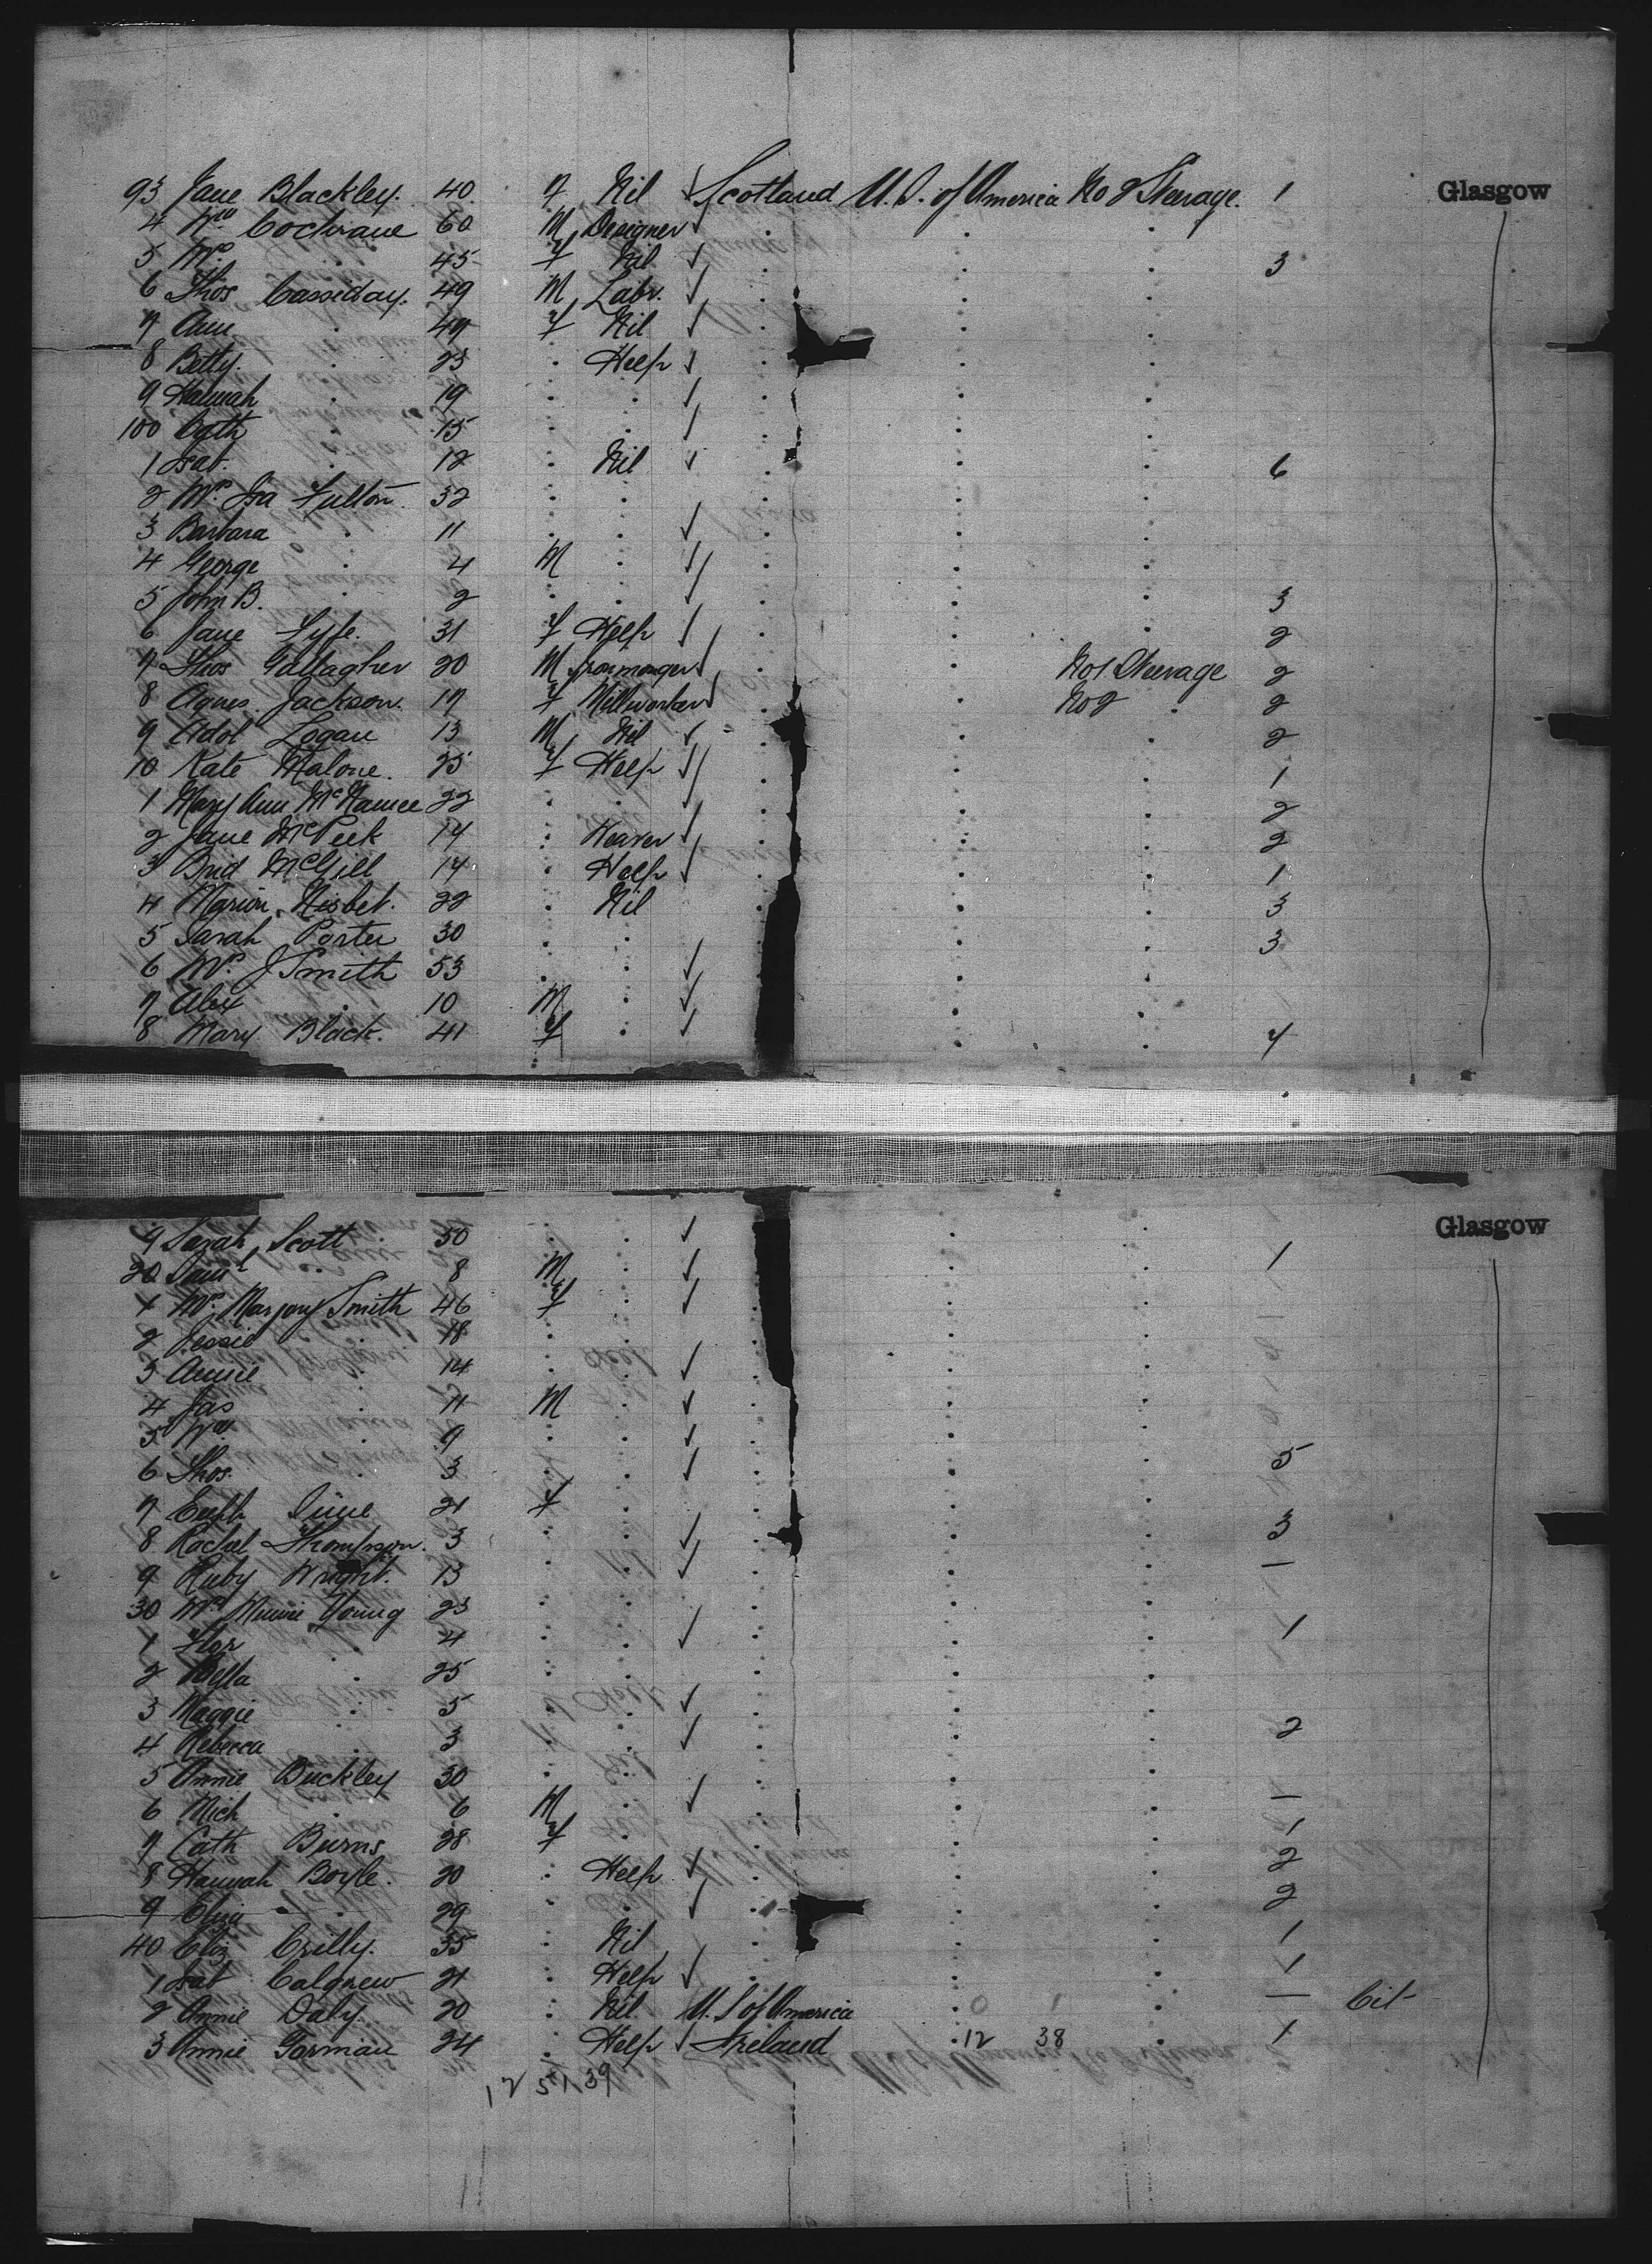 93 Jane Blackley. 40. F Nil ✓ Scotland U.S. of America No 2 Steerage. 1 Glasgow
4 Wm Cochrane 60 M Designer ✓
5 Mrs . 45 F Nil ✓ 3
6 Thos Cassiday. 49 M Labr. ✓
7 Ann . 47 F Nil ✓
8 Betty . 23 . Help ✓
9 Hannah . 19 . . ✓
100 Cath . 15 . . ✓
1 Isab. . 12 . Nil ✓ 6
2 Mrs Isa Fulton 32 . .
3 Barbara . 11 . . ✓
4 George . 4 M . ✓
5 John B. . 2 . . ✓ 3
6 Jane Fyfe. 31 F Help ✓ 2
7 Thos Gallagher 20 M Ironmonger ✓ No 1 Steerage 2
8 Agnes Jackson. 17 F Millworker ✓ No 2 . 2
9 Adol Logan 13 M Nil ✓ 2
10 Kate Malone. 25 F Help ✓ 1
1 Mary Ann McNamee 22 . . ✓ 2
2 Jane McPeek 14 . Weaver ✓ 2
3 Brid McGill 14 . Help ✓ 1
4 Marion Nisbet. 22 . Nil 3
5 Sarah Porter 30 . . 3
6 Mrs J Smith 53 . . ✓
7 Alex . 10 M . ✓
8 Mary Black. 41 F . ✓ 4
9 Sarah Scott 50 . . ✓ Glasgow
20 Saml . 8 M . ✓ 1
1 Mrs Marjory Smith 46 F . ✓
2 Jessie . 18 . .
3 Annie . 14 . . ✓
4 Jas . 11 M . ✓
5 Wm . 9 . . ✓
6 Thos. . 3 . . ✓ 5
7 21 F .
8 Rachel Thompson. 3 . . ✓ 3
9 Ruby Wright. 13 . . ✓ —
30 Mrs Minnie Young 23 . .
1 Flor . 4 . . ✓ 1
2 Bella . 25 . .
3 Maggie . 5 . . ✓
4 Rebecca . 3 . . ✓ 2
5 Annie Buckley 30 . .
6 Mich . 6 M . ✓ —
7 Cath Burns 28 F . 1
8 Hannah Boyle. 20 . Help ✓ 2
9 Eliza . 29 . . ✓ 2
40 Eliz Crilly. 35 . Nil 1
1 Isab Calgnew 21 . Help ✓ 1
2 Annie Daly. 20 . Nil U.S of America — Cit
3 Annie Gorman 24 . Help ✓ Ireland 12 38 1
12 51 39